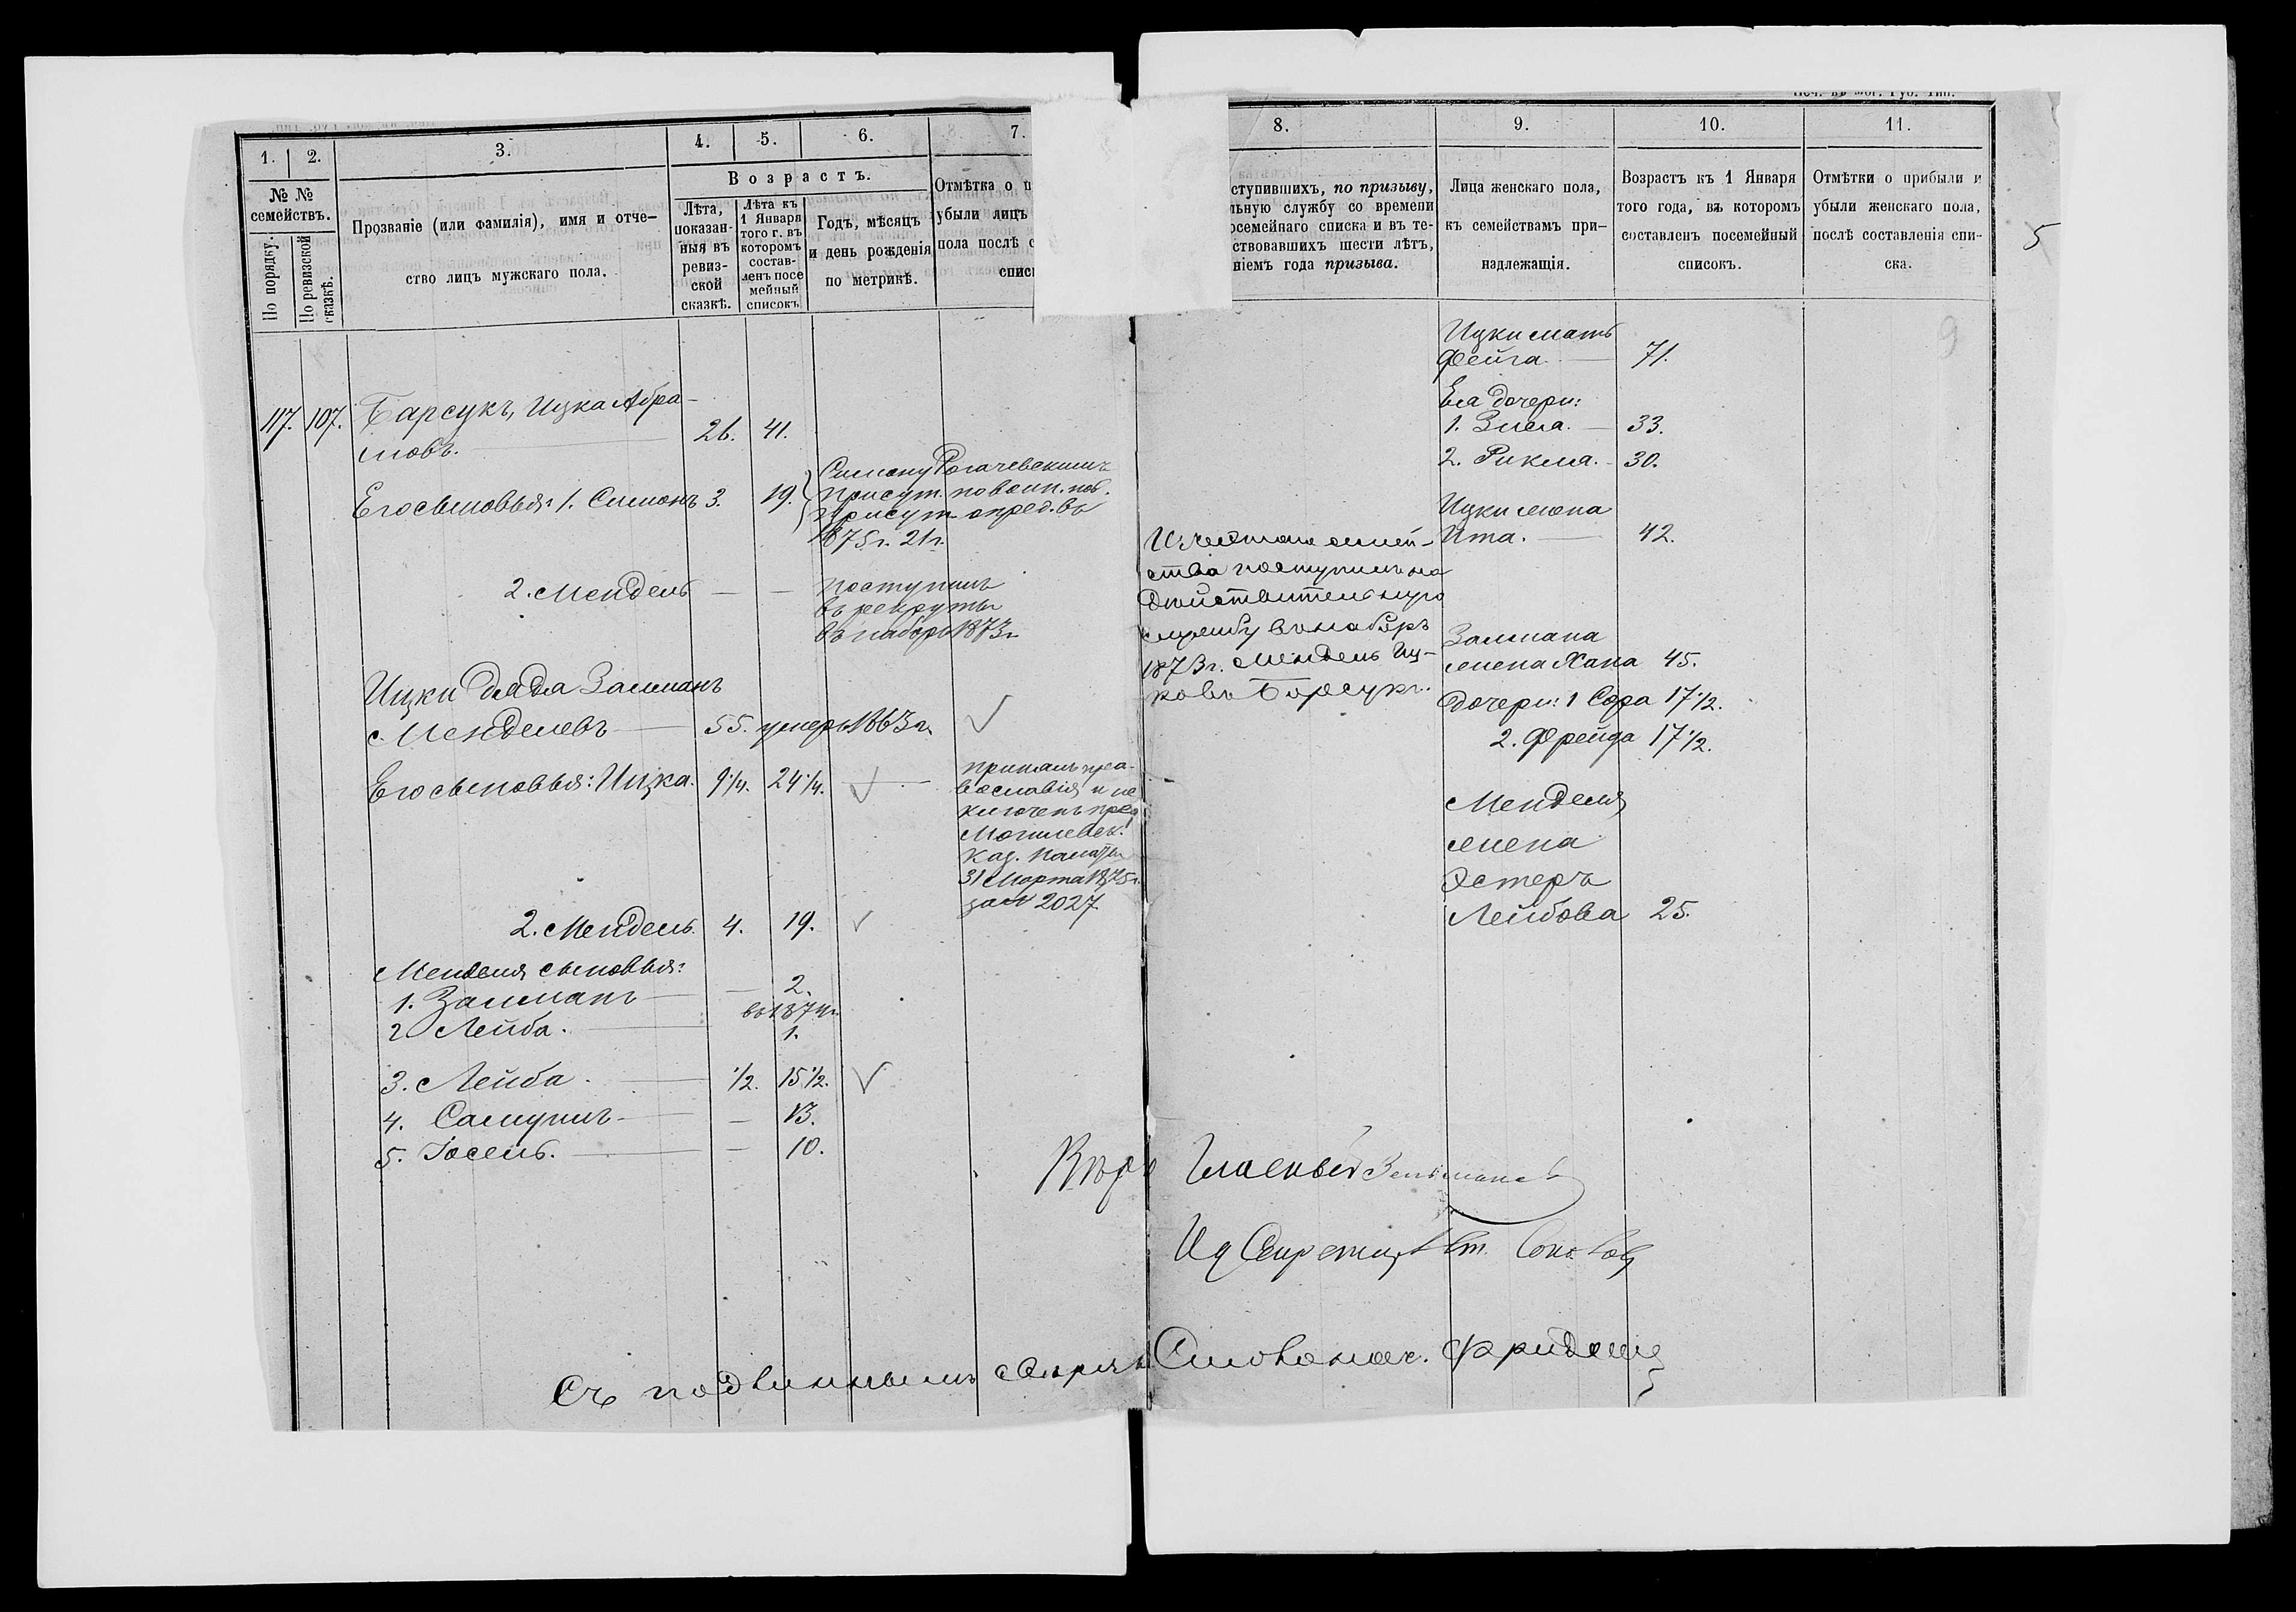 Печ. въ Мог. Губ. Тип.
1. 2. 3. 4. 5. 6. 7.
№ № семействъ.
По порядку.
По ревизской сказкѣ.
Прозваніе (или фамилія), имя и отче-
ство лицъ мужскаго пола.
Возрастъ.
Лѣта,
показан-
ныя въ
ревиз-
ской
сказкѣ.
Лѣта къ
1 Января
того г. въ
которомъ
состав-
ленъ посе
мейный
списокъ
Годъ, мѣсяцъ
и день рожденія
по метрикѣ.
Отмѣтка о п
убыли лицъ
пола послѣ с
списк
117. 107. Барсукъ, Ицка Абра-
мовъ. 26. 41.
Его сыновья: 1. Симонъ 3. 19.
Симону Рогачевскимъ
Присут. по воин. пов.
Присут опред. въ
1875 г. 21 г.
2. Мендель — —
поступилъ
въ рекруты
въ наборъ 1873 г.
Ицки дядя Залманъ
Менделевъ 55. умеръ 1863 г.
Его сыновья: Ицка. 9 1/4. 24 1/4.
принялъ пра-
вославія и ис
ключенъ пред
Могилевск.
Каз. Палаты
31 Марта 1875 г.
за № 2027
2. Мендель. 4. 19.
Менделя сыновья:
1. Залманъ — 2.
въ 1874 г.
2 Лейба. 1.
3. Лейба. 1/2. 15 1/2.
4. Самуилъ — 13.
5. Іосель. — 10.
Съ подлиннымъ свѣрялъ
8. 9. 10. 11.
ступившихъ, по призыву,
льную службу со времени
осемейнаго списка и въ те-
ствовавшихъ шести лѣтъ,
ніемъ года призыва.
Лица женскаго пола,
къ семействамъ при-
надлежащія.
Возрастъ къ 1 Января
того года, въ которомъ
составленъ посемейный
списокъ.
Отмѣтки о прибыли и
убыли женскаго пола,
послѣ составленія спи-
ска.
5
9
Ицки мать
Фейга 71.
Ея дочери:
1. Злега. 33.
2. Рикма. 30.
Ицки жена
Ита. 42.
Из
ства поступилъ на
дѣйствительную
службу въ наборъ
1873 г. Мендель Иц-
ковъ Борсукъ.
Залмана
жена Хана 45.
дочери: 1 Сора 17 1/2.
2. Фрейда 17 1/2.
Менделя
жена
Эстеръ
Лейбова 25.
Гласный Зельманов
Ид Секретаря
Фридлянд